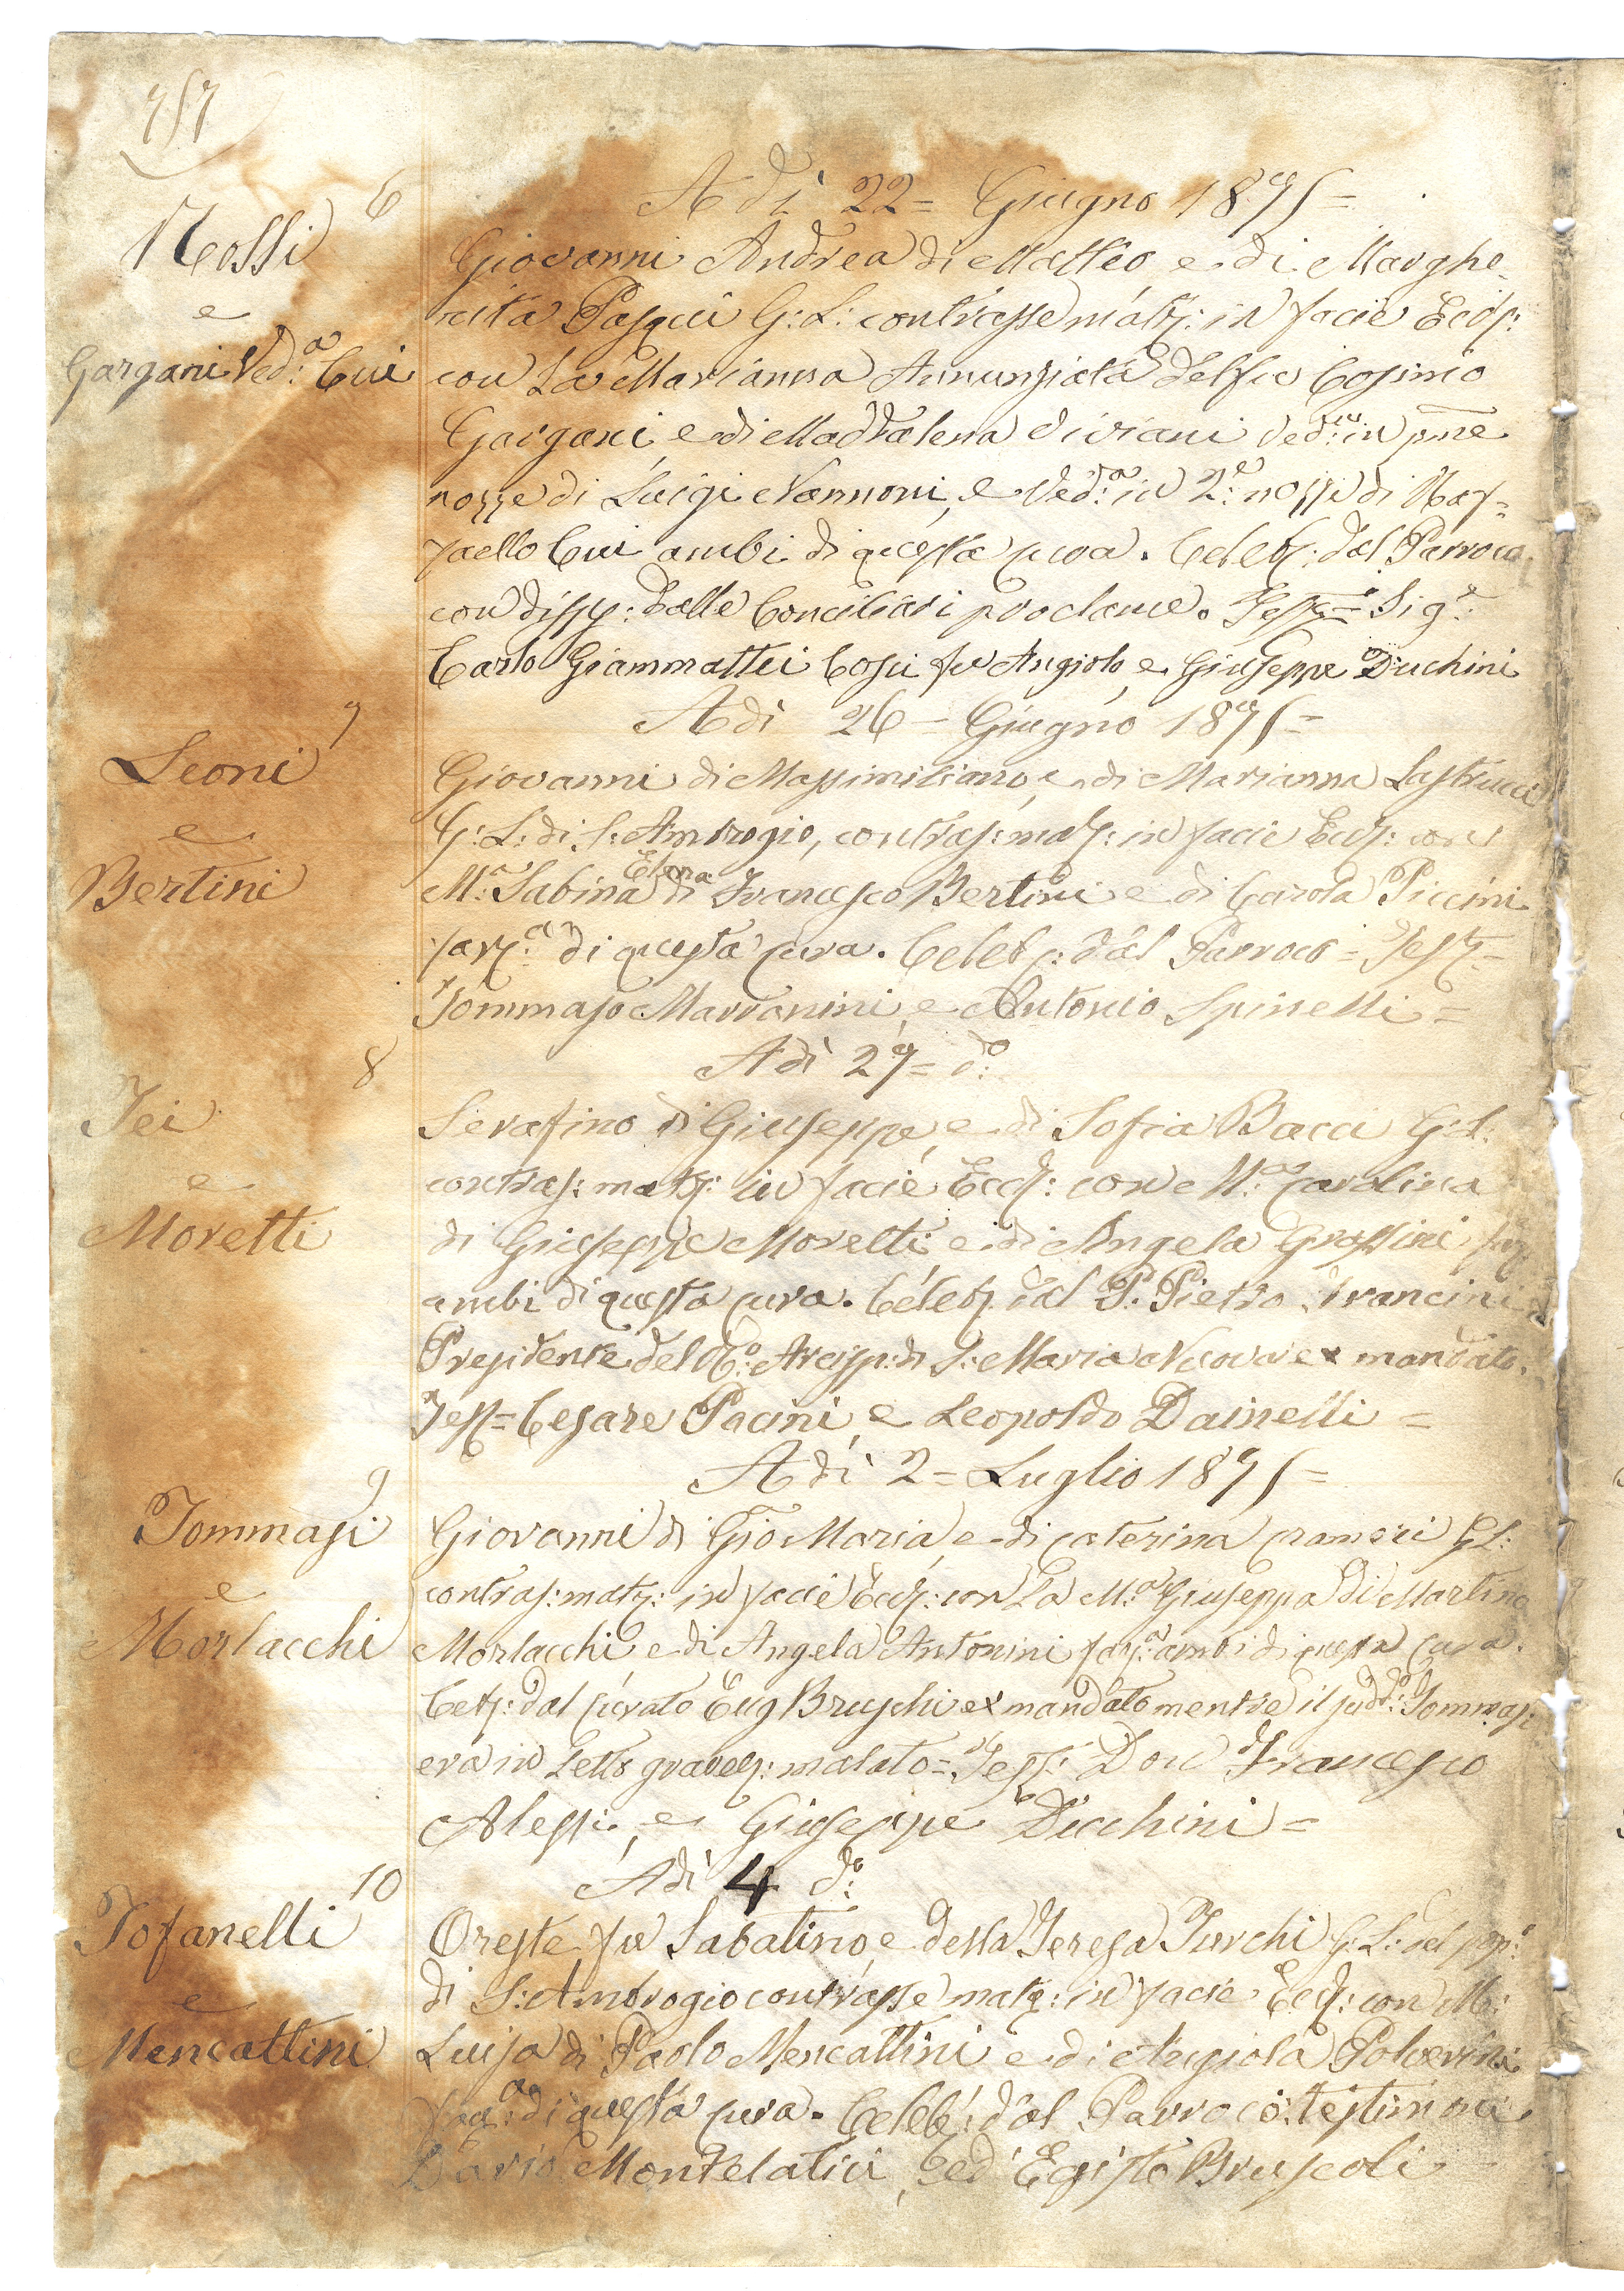 757
6
A dì 22 = Giugno 1875 =
Rossi
Giovanni Andrea di Matteo e di Marghe-
e
rita Pasqui G: L: contrasse matr: in facie Eccl:
Gargani Ved:a Cui
con La Marianna Annunziata del fu Cosimo
Gargani, e di Maddalena Viviani Ved:a in pme
nozze di Luigi Nannoni, e Ved:a in 2:e nozze di Raf=
faello Cui ambi di questa cura. Celeb: dal Parroco
con disp: dalle Conciliari proclame. Test= i Sig:i
Carlo Giammattei Cosci fu Angiolo, e Giuseppe Duchini
7
A dì 26 = Giugno 1875 =
Leoni
Giovanni di Massimiliano, e di Marianna Lastrucci
e
G: L: di S: Ambrogio, contras: matr: in facie Eccl: con
Bertini
M:a Sabina Elena di Francesco Bertini e di Carola Piccini
di questa cura. Celeb: dal Parroco = Test=
Tommaso Marranini, e Antonio Spinelli =
8
A dì 27 = do:
Tei
Serafino di Giuseppe, e di Sofia Bacci G: L:
e
contras: matr: in facie Eccl: con M:a Carolina
Moretti
di Giuseppe Moretti, e di Angela Grassini
ambi di questa cura. Celeb: dal P: Pietro Francini
Presidente del R:o Arcisp: di S: Maria Nuova ex mandato.
Test= Cesare Pacini, e Leopoldo Dainelli =
9
A dì 2 = Luglio 1875 =
Tommasi
Giovanni di Gio Maria, e di Caterina G L:
e
contras: matr: in facie Eccl: con La M:a Giuseppa di Martino
Morlacchi
Morlacchi e di Angela Antonini ambi di questa cura.
Celeb: dal Curato Eug Bruschi ex mandato mentre il sudd:o Tommasi
era in Letto gravem: malato = Test: Don Francesco
Alessi, e Giuseppe Duchini =
10
A dì 4 do:
Tofanelli
Oreste fu Sabatino, e della Teresa Turchi G: L: del pop:o
e
di S: Ambrogio contrasse matr: in facie Eccl: con M:
Mencattini
Luisa di Paolo Mencattini e di Angiola Polverini
di questa cura. Celeb: dal Parroco: testimoni
Dario Montelatici, ed Egisto Bruscoli